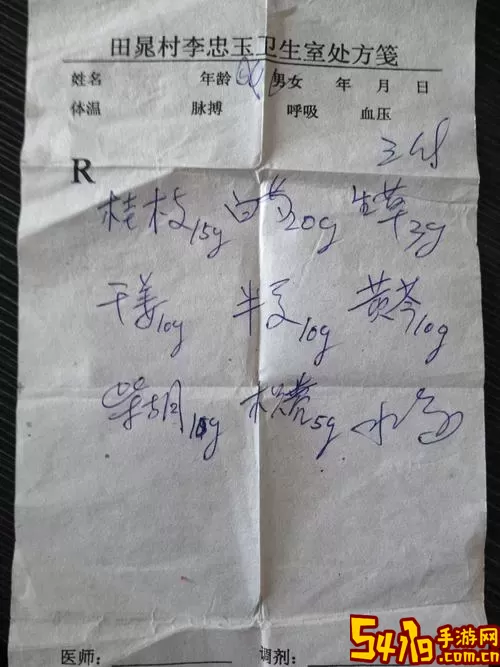 田晁村李忠玉卫生室处方笺
姓名 年龄 男女 年 月 日
体温 脉搏 呼吸 血压
三付
R
桂枝15g 白芍20g 生草3g
干姜10g 半夏10g 黄芩10g
柴胡15g 枳壳5g 水
医师: 调剂:
5417g手游网
.com.cn